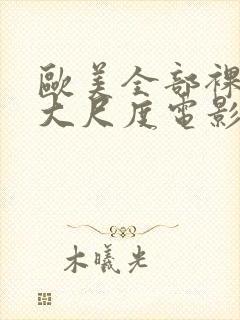 歐美全部裸
大尺度電影
木曦光